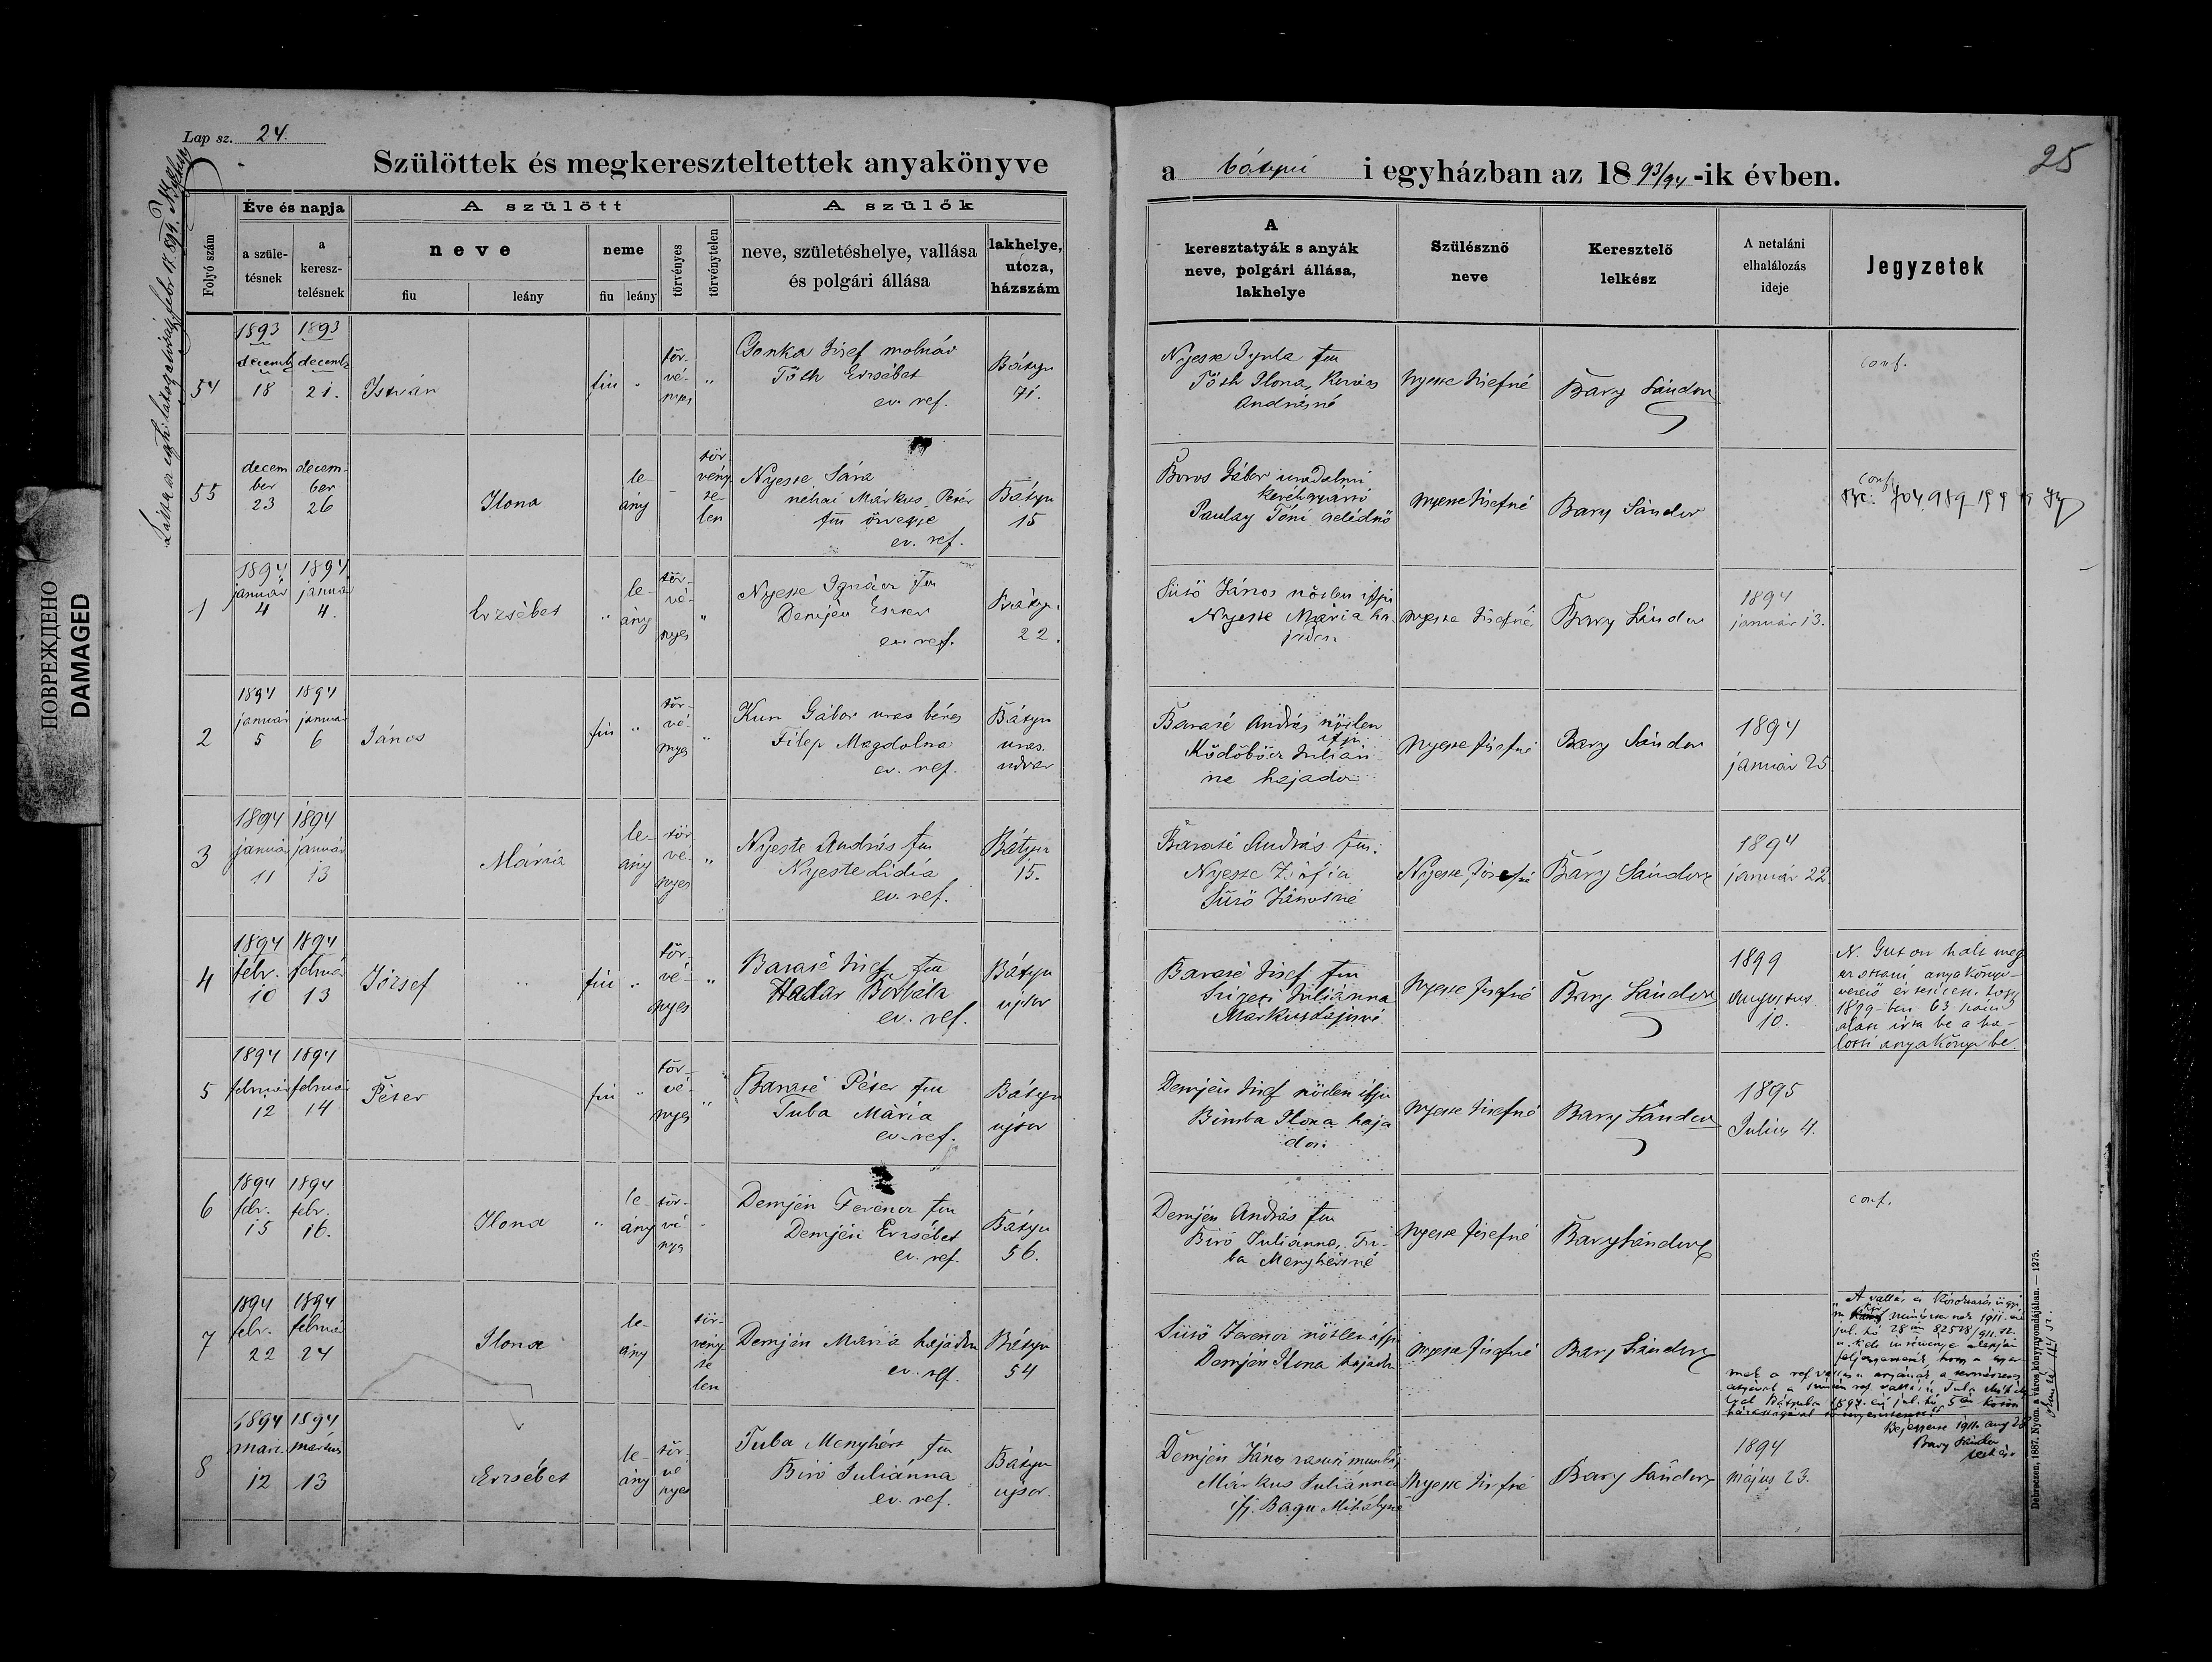 Lap sz. 24.
Szülöttek és megkereszteltettek anyakönyve
a bátyui i egyházban az 1893/94-ik évben.
25
ПОВРЕЖДЕНО
DAMAGED
Folyó szám
Éve és napja
a születésnek
a keresztelésnek
A szülött
neve
fiu
leány
neme
fiu
leány
törvényes
törvénytelen
A szülők
neve, születéshelye, vallása
és polgári állása
lakhelye,
utcza,
házszám
A
keresztatyák s anyák
neve, polgári állása,
lakhelye
Szülésznő
neve
Keresztelő
lelkész
A netaláni
elhalálozás
ideje
Jegyzetek
54
1893 1893
decemb decemb
18 21.
István
fiu
tör-
vé-
nyes
Gonka Jósef molnár
Tóth Erzsébet
ev. ref.
Bátyu
71.
Nyeste Gyula fm
Tóth Ilona,
Andrásné
Nyeste Jósefné
Bary Sándor
conf.
55
decem decem-
ber ber
23 26
Ilona
le-
ány
tör-
vény-
te-
len
Nyeste Sára
néhai Márkus Péter
fm özvegye
ev. ref.
Bátyu
15
Boros Gábor uradalmi
kerékgyártó
Paulay Tóni cselédnő
Nyeste Jósefné
Bary Sándor
conf.
1
1894 1894
január január
4 4.
Erzsébet
le-
ány
tör-
vé-
nyes
Nyeste Ignácz fm
Demjén Eszter
ev. ref.
Bátyu
22.
Sütő János nőtlen ifju
Nyeste Mária ha-
jadon
Nyeste Jósefné
Bary Sándor
1894
január 13.
2
1894 1894
január január
5 6
János
fiu
tör-
vé-
nyes
Kun Gábor uras béres
Filep Magdolna
ev. ref.
Bátyu
uras.
udvar
Baraté András nőtlen
ifju
Ködöböcz Julián-
na hajadon
Nyeste Jósefné
Bary Sándor
1894
január 25
3
1894 1894
január január
11 13
Mária
le-
ány
tör-
vé-
nyes
Nyeste András fm
Nyeste Lidia
ev. ref.
Bátyu
15.
Baraté András fm.
Nyeste Zsófia
Sütő Jánosné
Nyeste Jósefné
Bary Sándor
1894
január 22.
4
1894 1894
febr. február
10 13
József
fiu
tör-
vé-
nyes
Baraté Jósef fm
Hadar Borbála
ev. ref.
Bátyu
ujsor
Baraté Jósef fm
Szigeti Juliánna
Markus Lajosné
Nyeste Jósefné
Bary Sándor
1899
augustus
10.
N. Guton halt meg
az ottani anyakönyv-
vezető értesitett hogy
1899-ben 63 szám
alatt irta be a ha-
lotti anyakönyvbe.
5
1894 1894
február február
12 14
Péter
fiu
tör-
vé-
nyes
Baraté Péter fm
Tuba Mária
ev. ref.
Bátyu
ujsor
Demjén Jósef nőtlen ifju
Bimba Ilona haja
don
Nyeste Jósefné
Bary Sándor
1895
Julius 4.
6
1894 1894
febr. febr.
15 16.
Ilona
le-
ány
tör-
vé-
nyes
Demjén Ferencz fm
Demjén Erzsébet
ev. ref.
Bátyu
56.
Demjén András fm
Biró Juliánna, Tu-
ba Menyhértné
Nyeste Jósefné
Bary Sándor
conf.
7
1894 1894
febr. február
22 24
Ilona
le-
ány
tör-
vény-
te
len
Demjén Mária hajadon
ev. ref.
Bátyu
54
Sütő Ferencz nőtlen ifju
Demjén Ilona hajadon
Nyeste Jósefné
Bary Sándor
A vallás és közoktatásügyi
m. kir. miniszternek 1911. évi
jul. hó 28án 82528/911. sz.
a. kelt
feljegyeztetik, hogy a gyer-
mek a ref. vallásu anyának a természetes
Bejegyezte 1911. aug 28
Bary Sándor
lelkész
8
1894 1894
márc. március
12 13
Erzsébet
le-
ány
tör-
vé
nyes
Tuba Menyhért fm
Biró Juliánna
ev. ref.
Bátyu
ujsor.
Demjén János vasuti munkás
Márkus Juliánna
ifj. Bagu Mihályné
Nyeste Jósefné
Bary Sándor
1894
május 23.
Debreczen, 1887. Nyom. a város könyvnyomdájában. — 1275.